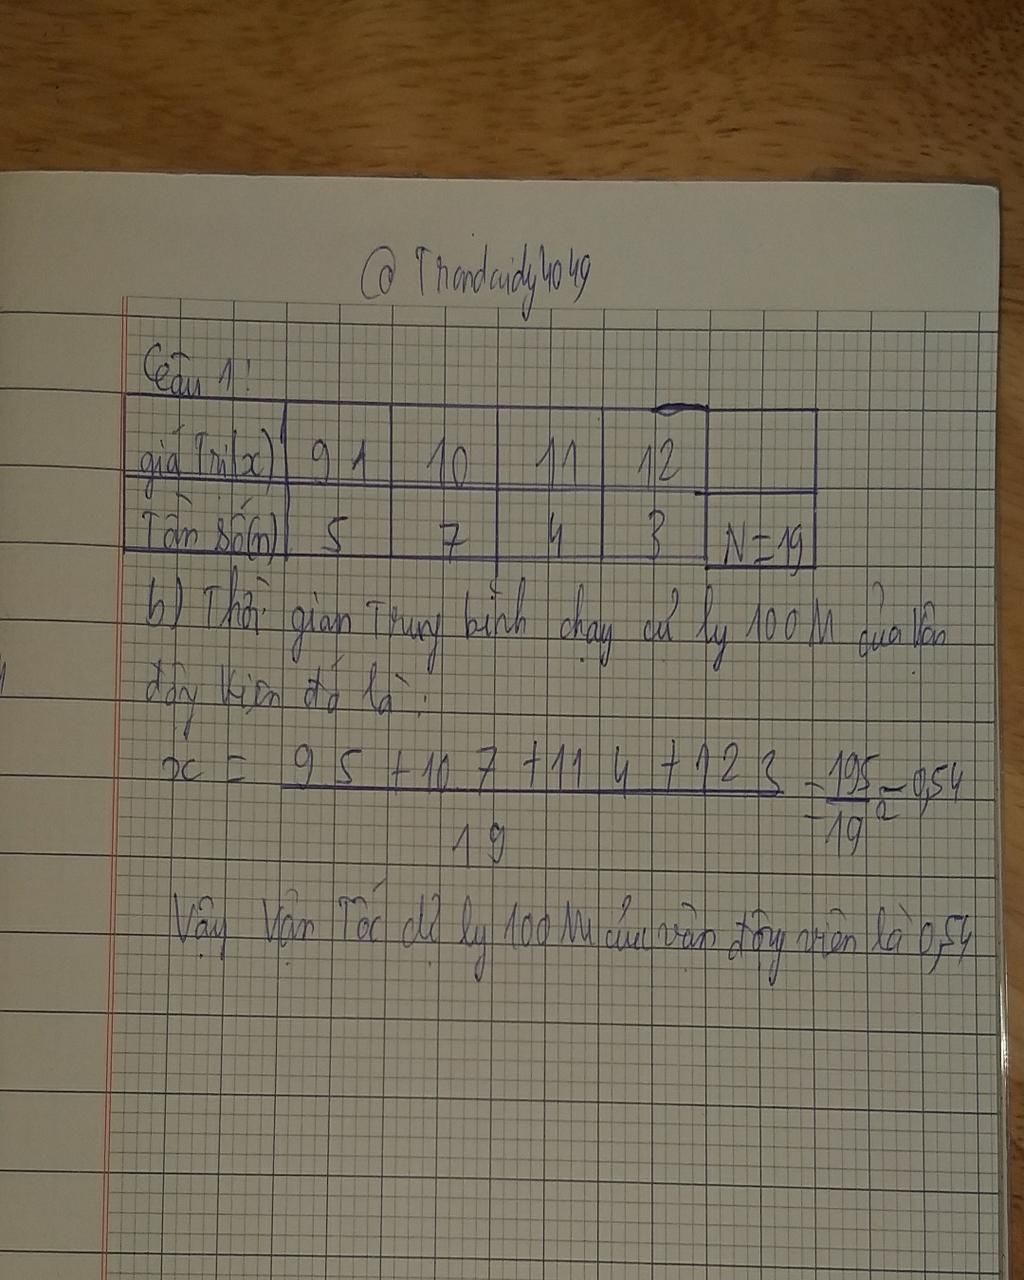 @Trandaidy4049
Câu 1:
giá Trị(x) 9 1 10 11 12
Tần số(n) 5 7 4 3 N=19
b) Thời gian Trung bình chạy cử ly 100M của Vân
động viên đó là:
x = 9 5 + 10 7 + 11 4 + 12 3 = 195 = 0,54
19 19 2
Vậy Vận Tốc dử ly 100 M của vân động viên là 0,54